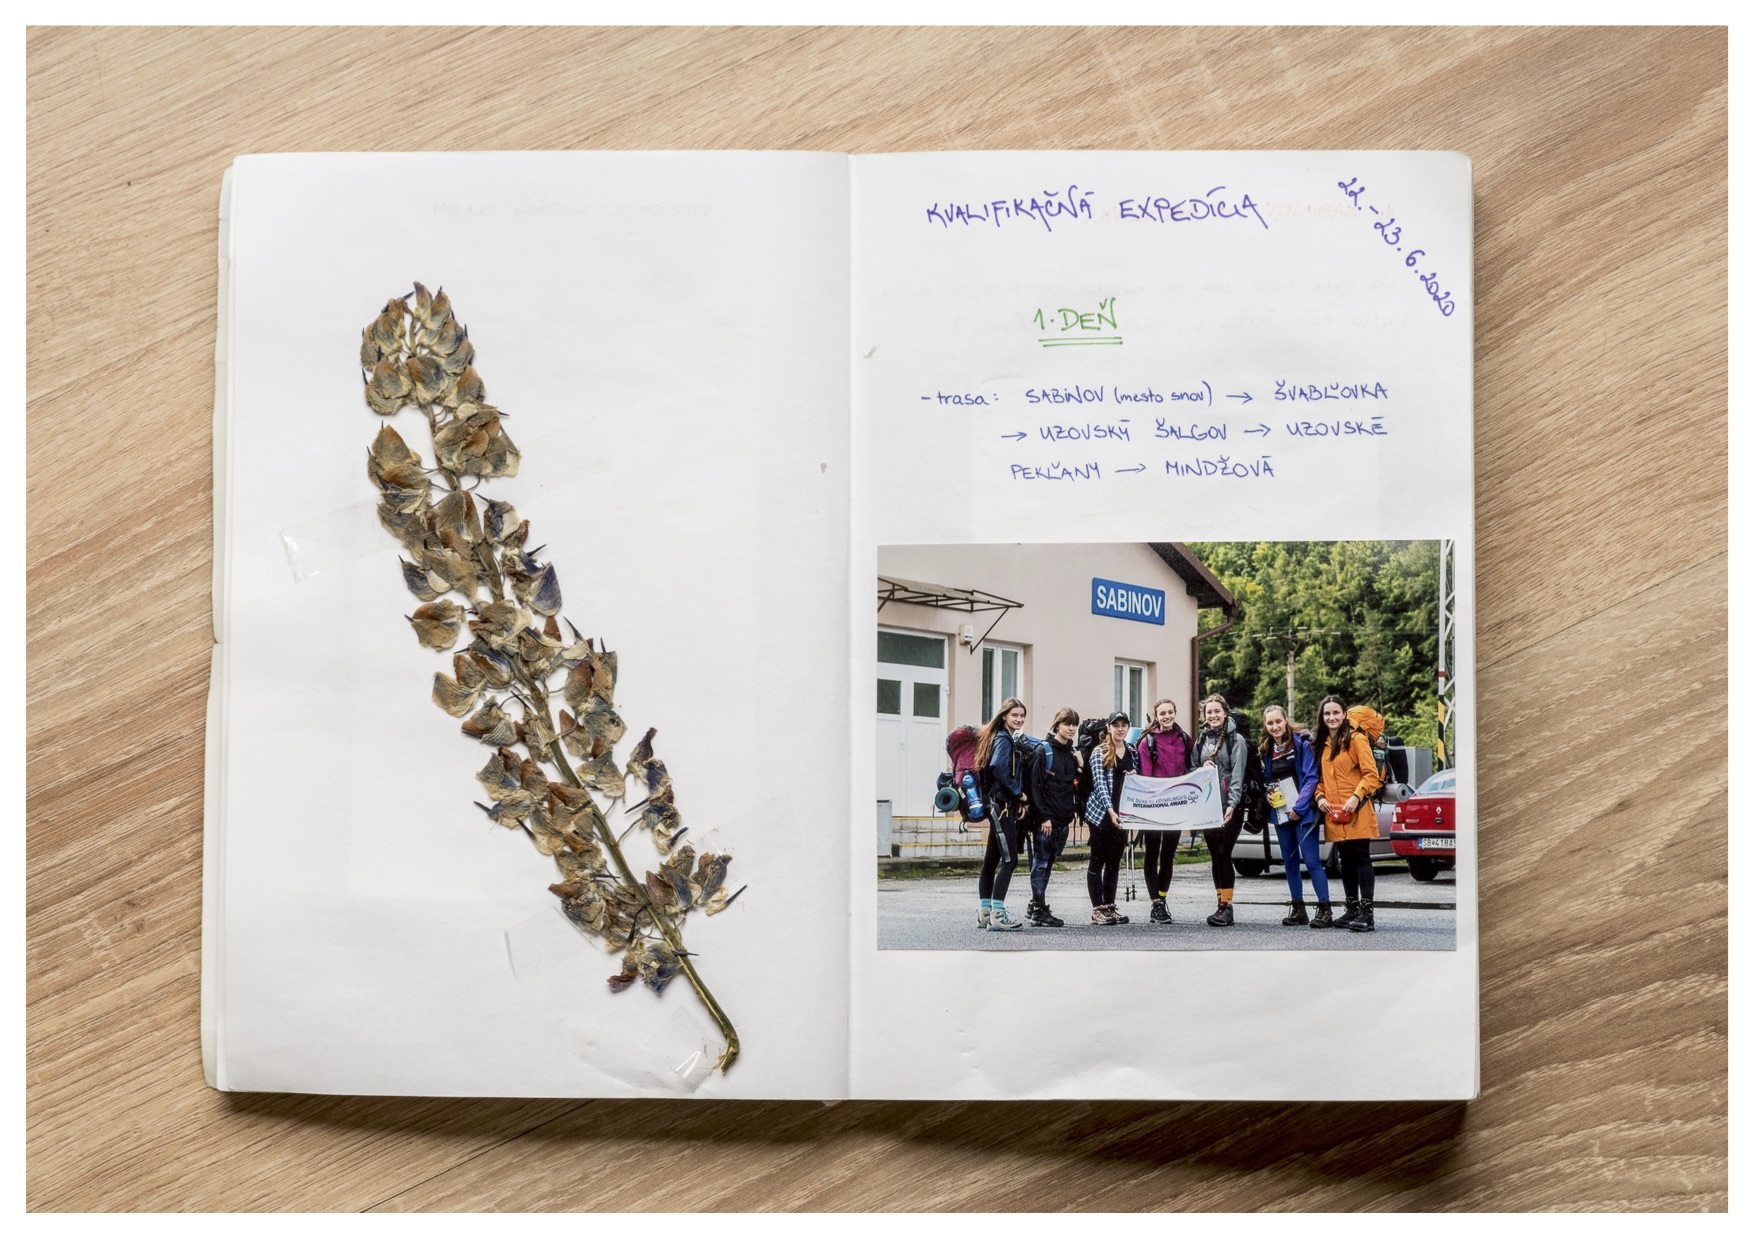 KVALIFIKAČNÁ EXPEDÍCIA
22.-23.6.2020
1. DEŇ
- trasa: SABINOV (mesto snov) → ŠVABĽOVKA
→ UZOVSKÝ ŠALGOV → UZOVSKÉ
PEKĽANY → MINDŽOVÁ
SABINOV
THE DUKE OF EDINBURGH'S
INTERNATIONAL AWARD